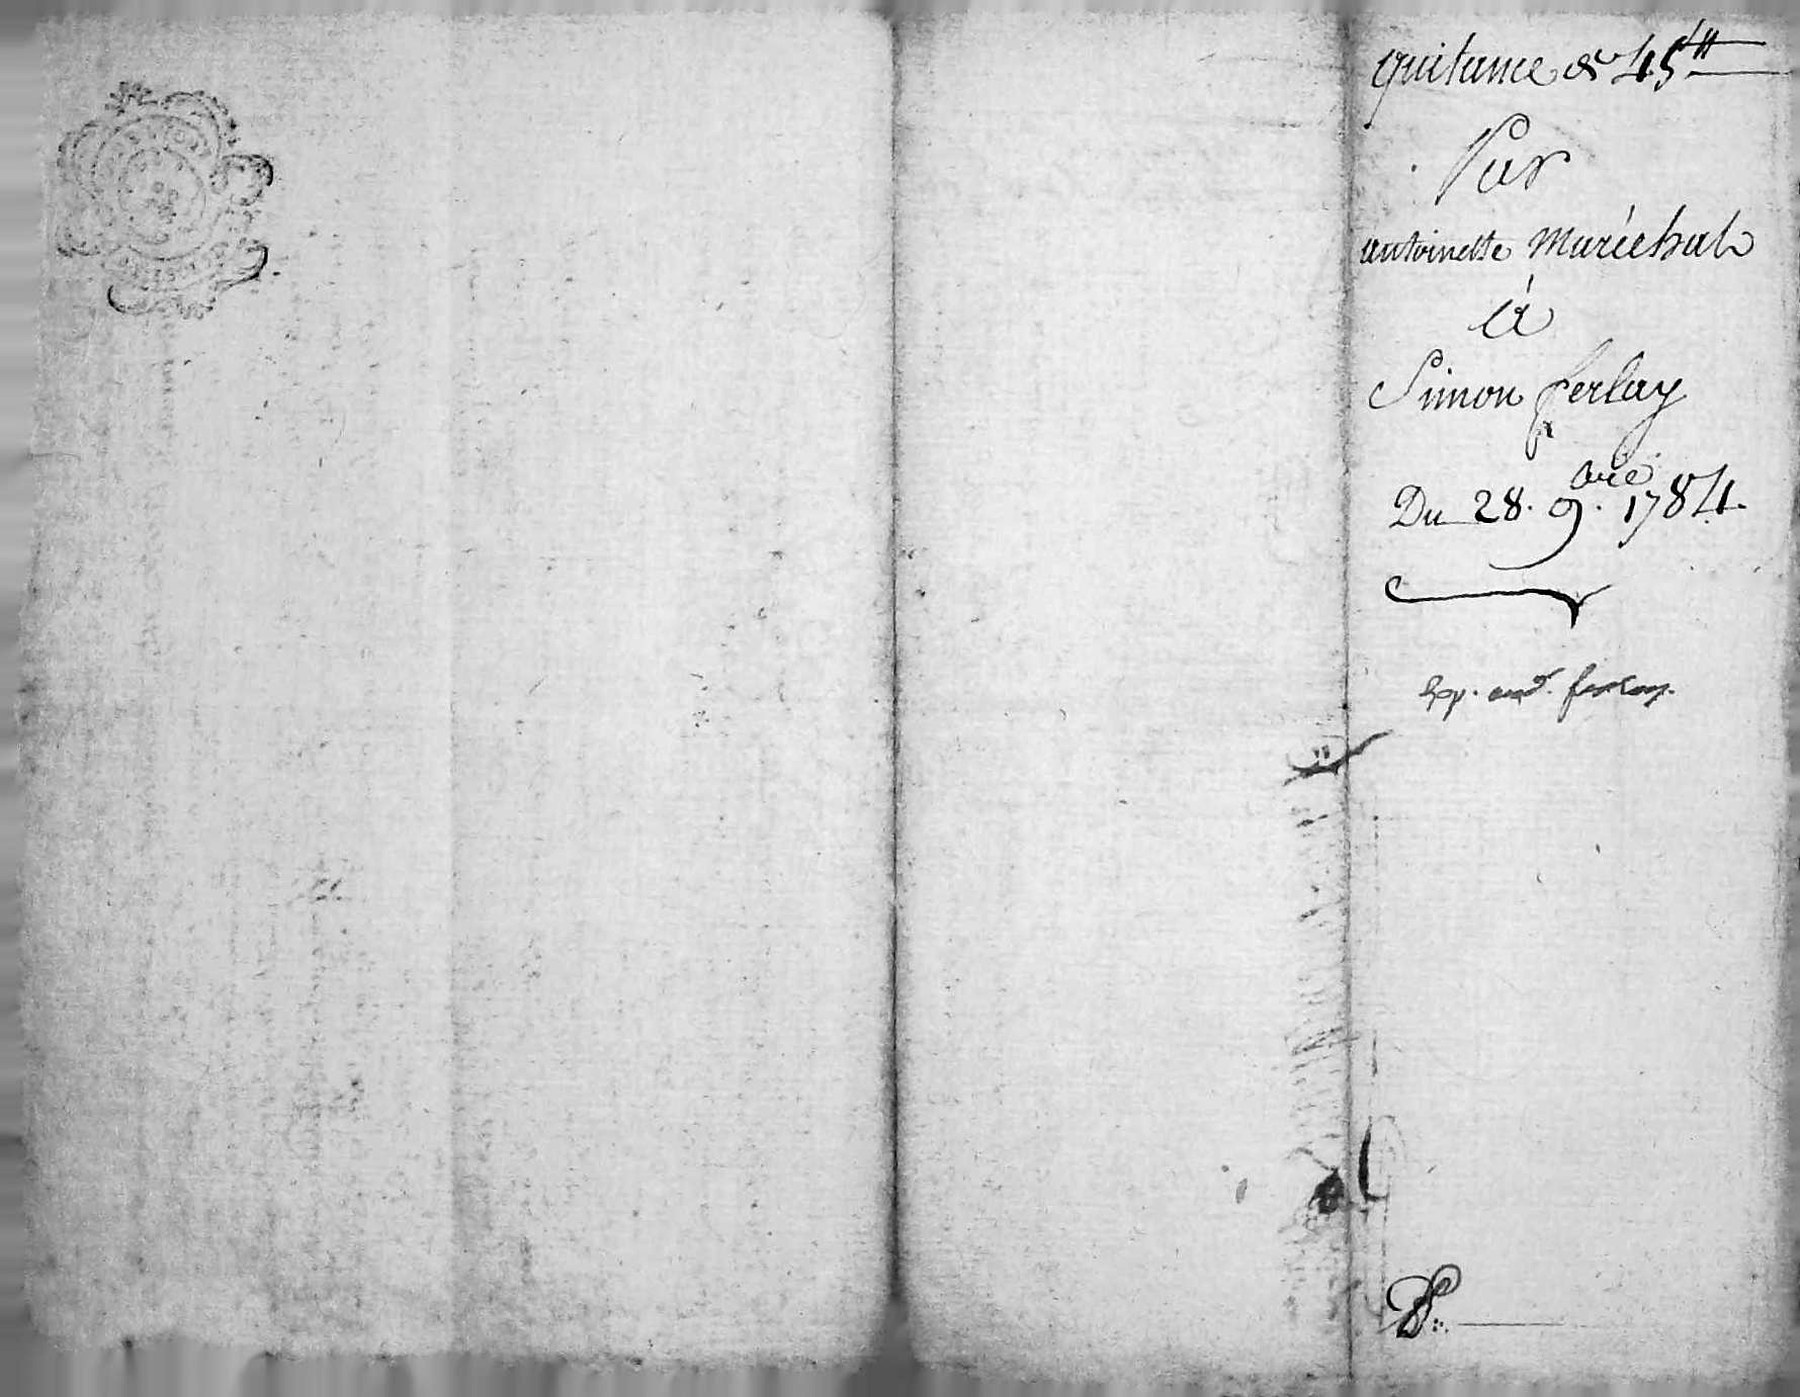 quitance de 45ᵗᵗ
Par
antoinette Maréchal
à
Simon ferlay
Du 28. 9.bre 1784.
ferlay.